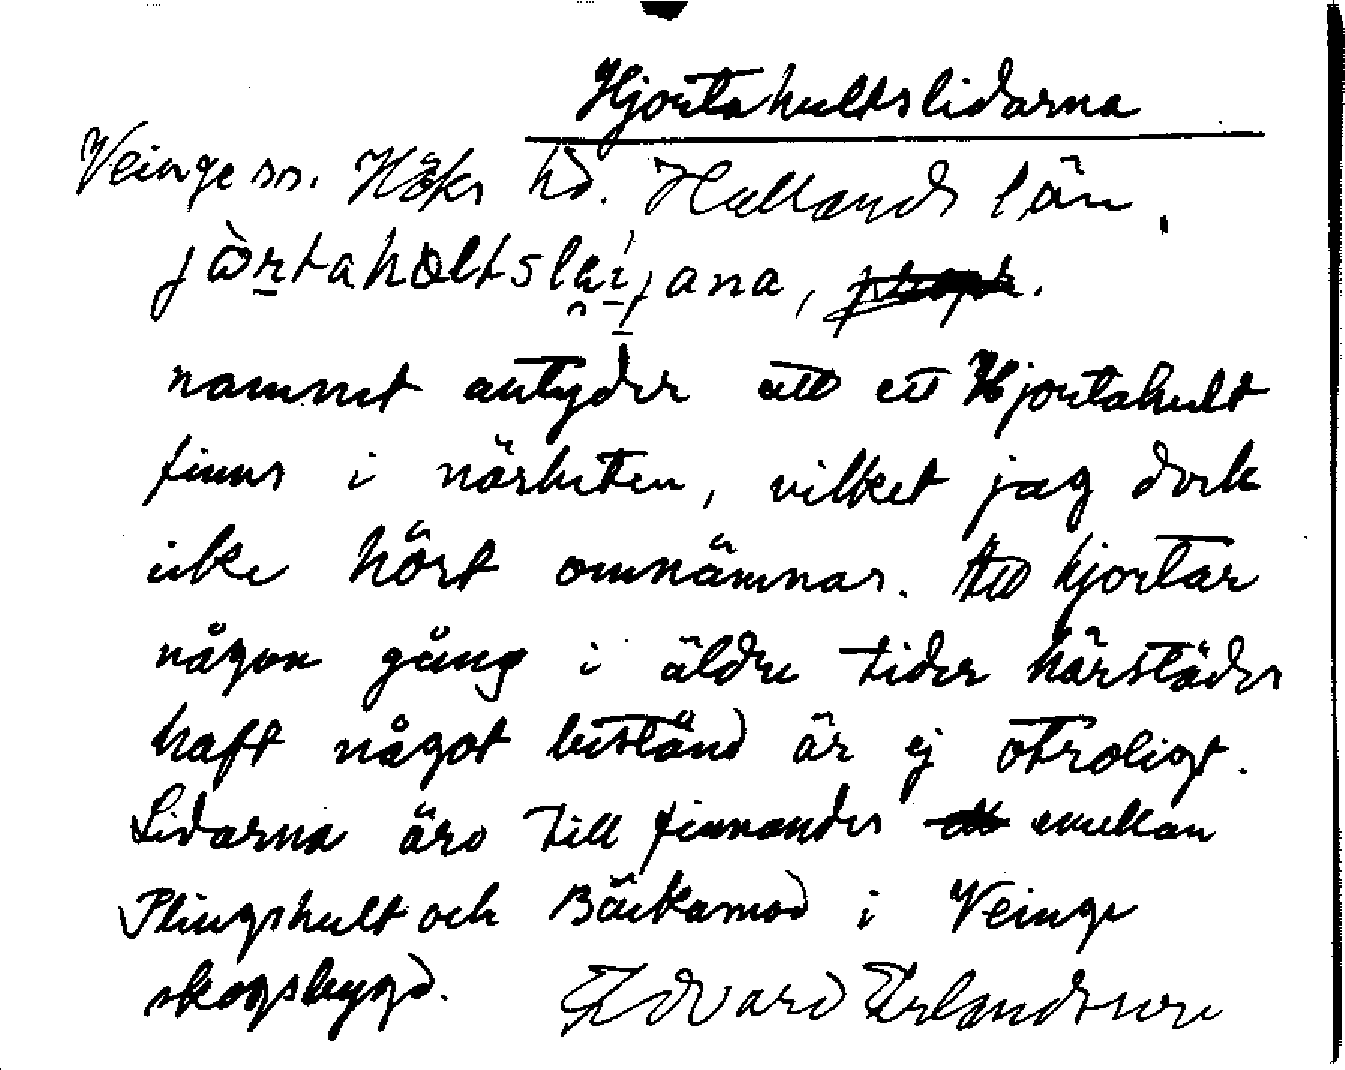 Hjortahultslidarna
Veinge sn. Höks hd. Hallands län.
namnet antyder att ett Hjortahult
finns i närheten, vilket jag dock
icke hört omnämnas. Att hjortar
någon gång i äldre tider härstädes
haft något bestånd är ej otroligt.
Lidarna äro till finnandes emellan
Plingshult och Bäckamod i Veinge
skogsbygd. Edvard Erlandsson